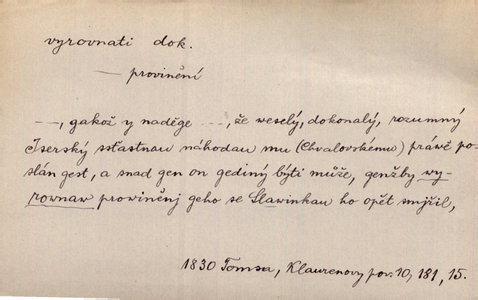 vyrovnati dok.
— provinění
— —, gakož y naděge — —, že weselý, dokonalý, rozumný
Iserský ssťastnau náhodau mu (Chvalovskému) právě po-
slán gest, a snad gen on gediný býti může, genžby wy-
rownaw prowiněnj geho se Slawinkau ho opět smjřil,
1830 Tomsa, Klaurenovy pov. 10, 181, 15.